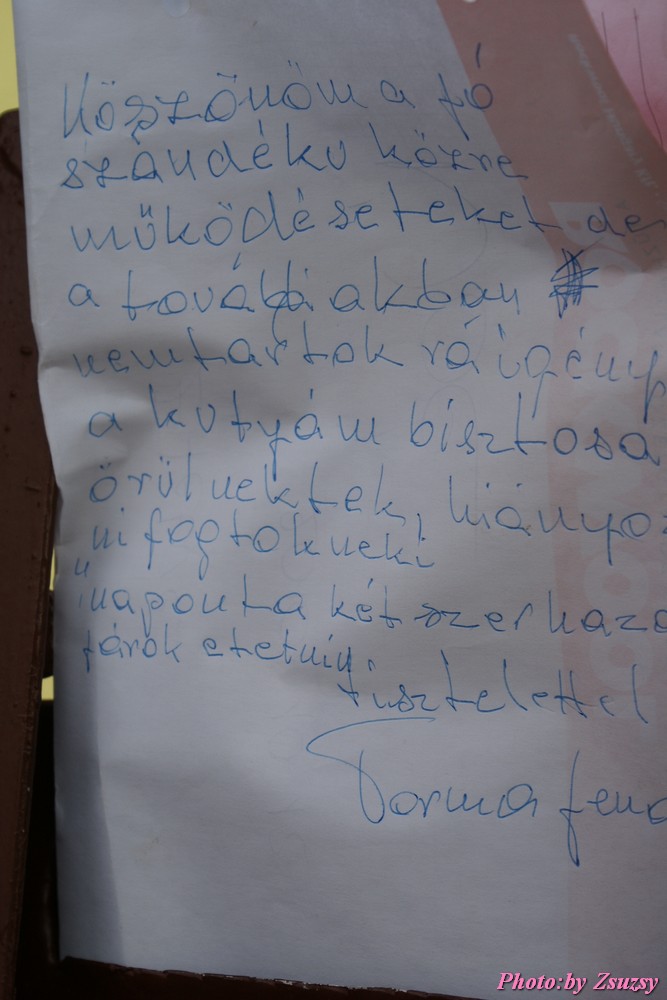 Köszönöm a jó
szándéku közre
működéseteket de
a továbbiakban
nemtartok rá igény
a kutyám bisztosa
örül nektek, hiányoz
ni fogtok neki
naponta kétszer haza
járok etetni.
tisztelettel
Torma
Photo:by Zsuzsy